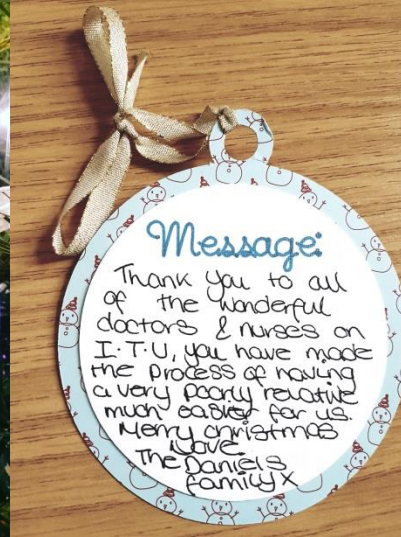 Message:
Thank you to all
of the wonderful
doctors & nurses on
I.T.U, you have made
the process of having
a very poorly relative
much easier for us.
Merry christmas
Love
The Daniels
family x